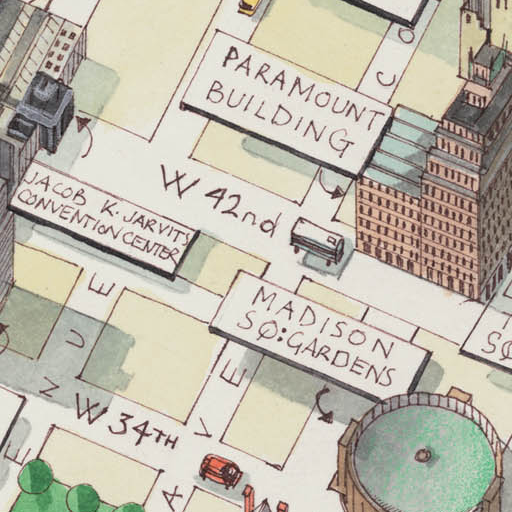 PARAMOUNT
BUILDING
W 42nd
JACOB K. JARVITS
CONVENTION CENTER
MADISON
SQ: GARDENS
W 34TH